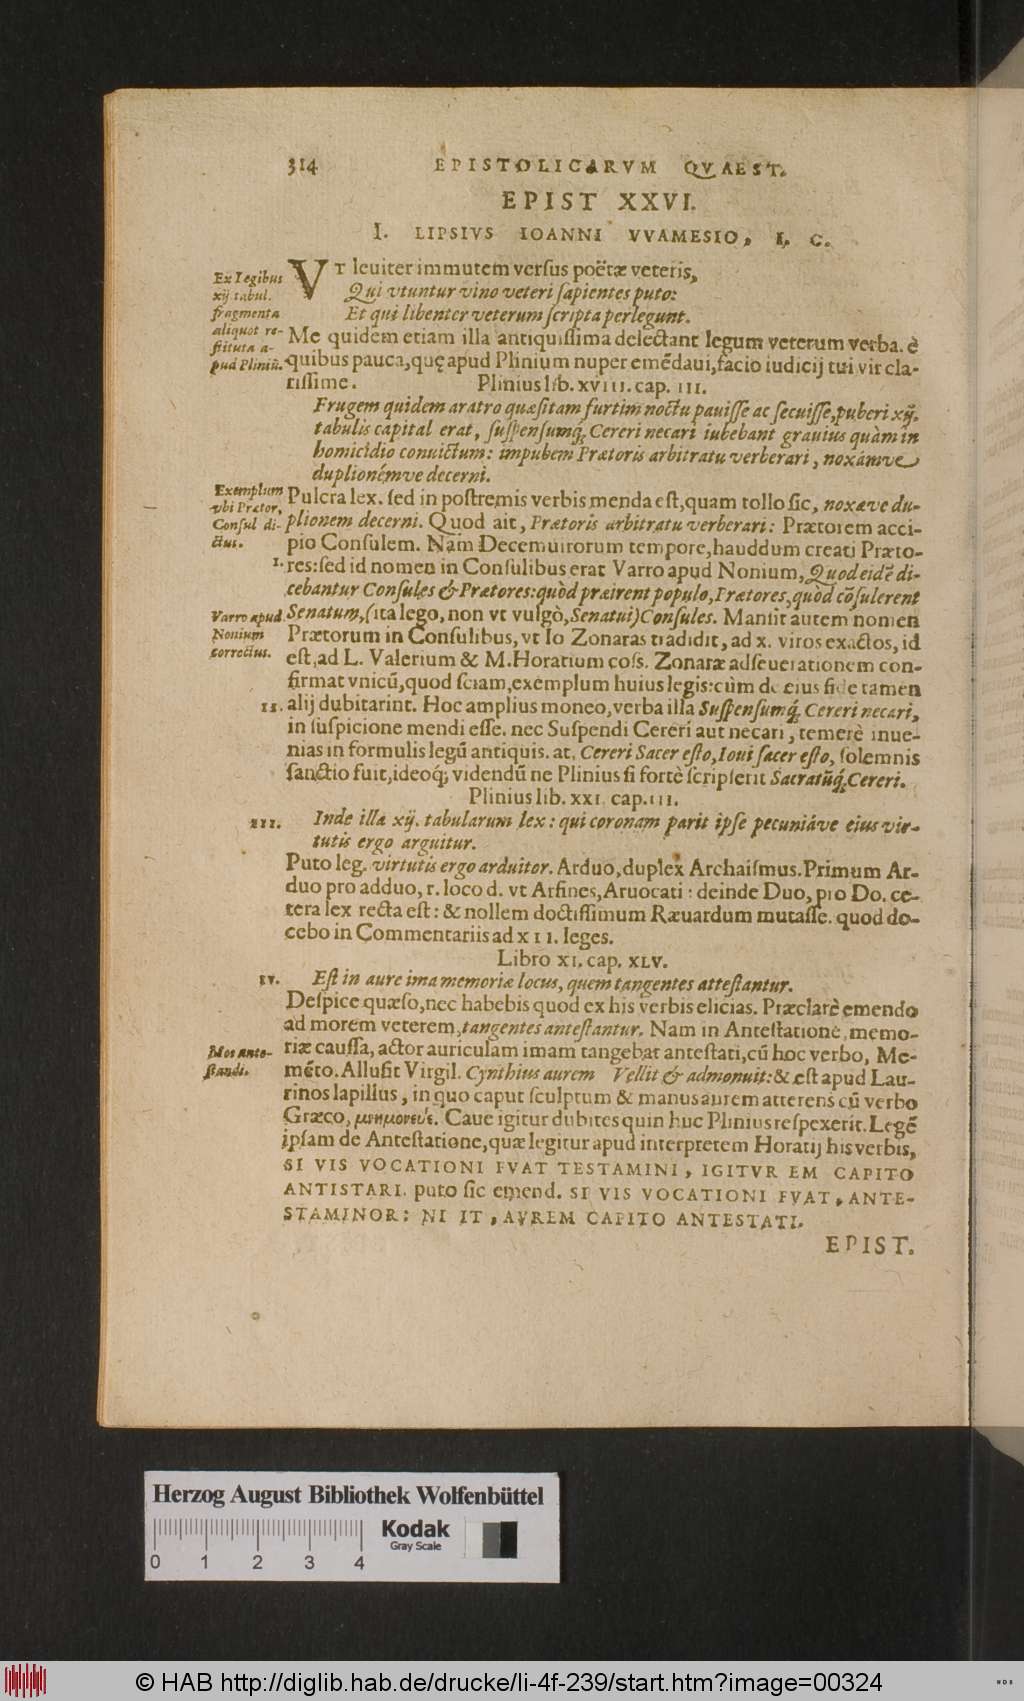 314 EPISTOLICARVM QVAEST.
EPIST XXVI.
I. LIPSIVS IOANNI VVAMESIO, I. C.
Ex Legibus
xij tabul.
fragmenta
aliquot re-
stituta a-
pud Pliniū.
VT leuiter immutem versus poëtæ veteris,
Qui vtuntur vino veteri sapientes puto:
Et qui libenter veterum scripta perlegunt.
Me quidem etiam illa antiquissima delectant legum veterum verba. è
quibus pauca, quę apud Plinium nuper emēdaui, facio iudicij tui vir cla-
rissime. Plinius lib. XVIII. cap. III.
Frugem quidem aratro quæsitam furtim noctu pauisse ac secuisse, puberi xij.
tabulis capital erat, suspensumq́; Cereri necari iubebant grauius quàm in
homicidio conuictum: impubem Prætoris arbitratu verberari, noxámve
duplionémve decerni.
Exemplum
vbi Prætor,
Consul di-
ctus.
Pulcra lex. sed in postremis verbis menda est, quam tollo sic, noxæve du-
plionem decerni. Quod ait, Prætoris arbitratu verberari: Prætorem acci-
pio Consulem. Nam Decemuirorum tempore, hauddum creati Præto-
I. res: sed id nomen in Consulibus erat Varro apud Nonium, Quod eidē di-
cebantur Consules & Prætores: quòd præirent populo, Prætores, quòd cōsulerent
Varro apud
Nonium
correctus.
Senatum, (ita lego, non vt vulgò, Senatui) Consules. Mansit autem nomen
Prætorum in Consulibus, vt Io Zonaras tradidit, ad x. viros exactos, id
est, ad L. Valerium & M. Horatium coss. Zonaræ adseuerationem con-
firmat vnicū, quod sciam, exemplum huius legis: cùm de eius fide tamen
II. alij dubitarint. Hoc amplius moneo, verba illa Suspensumq́; Cereri necari,
in suspicione mendi esse. nec Suspendi Cereri aut necari, temerè inue-
nias in formulis legū antiquis. at, Cereri Sacer esto, Ioui sacer esto, solemnis
sanctio fuit, ideoq́; videndū ne Plinius si fortè scripserit Sacratūq́; Cereri.
Plinius lib. XXI. cap. III.
III. Inde illa xij. tabularum lex: qui coronam parit ipse pecuniáve eius vir-
tutis ergo arguitur.
Puto leg. virtutis ergo arduitor. Arduo, duplex Archaismus. Primum Ar-
duo pro adduo, r. loco d. vt Arfines, Aruocati: deinde Duo, pro Do. ce-
tera lex recta est: & nollem doctissimum Ræuardum mutasse. quod do-
cebo in Commentariis ad XII. leges.
Libro XI. cap. XLV.
IV. Est in aure ima memoriæ locus, quem tangentes attestantur.
Despice quæso, nec habebis quod ex his verbis elicias. Præclarè emendo
ad morem veterem, tangentes antestantur. Nam in Antestatione, memo-
Mos ante-
standi.
riæ caussa, actor auriculam imam tangebat antestati, cū hoc verbo, Me-
mēto. Allusit Virgil. Cynthius aurem Vellit & admonuit: & est apud Lau-
rinos lapillus, in quo caput sculptum & manus aurem atterens cū verbo
Græco, μνημονεύε. Caue igitur dubites quin huc Plinius respexerit. Legē
ipsam de Antestatione, quæ legitur apud interpretem Horatij his verbis,
SI VIS VOCATIONI FVAT TESTAMINI, IGITVR EM CAPITO
ANTISTARI. puto sic emend. SI VIS VOCATIONI FVAT, ANTE-
STAMINOR: NI IT, AVREM CAPITO ANTESTATI.
EPIST.
Herzog August Bibliothek Wolfenbüttel
Kodak
Gray Scale
0 1 2 3 4
© HAB http://diglib.hab.de/drucke/li-4f-239/start.htm?image=00324